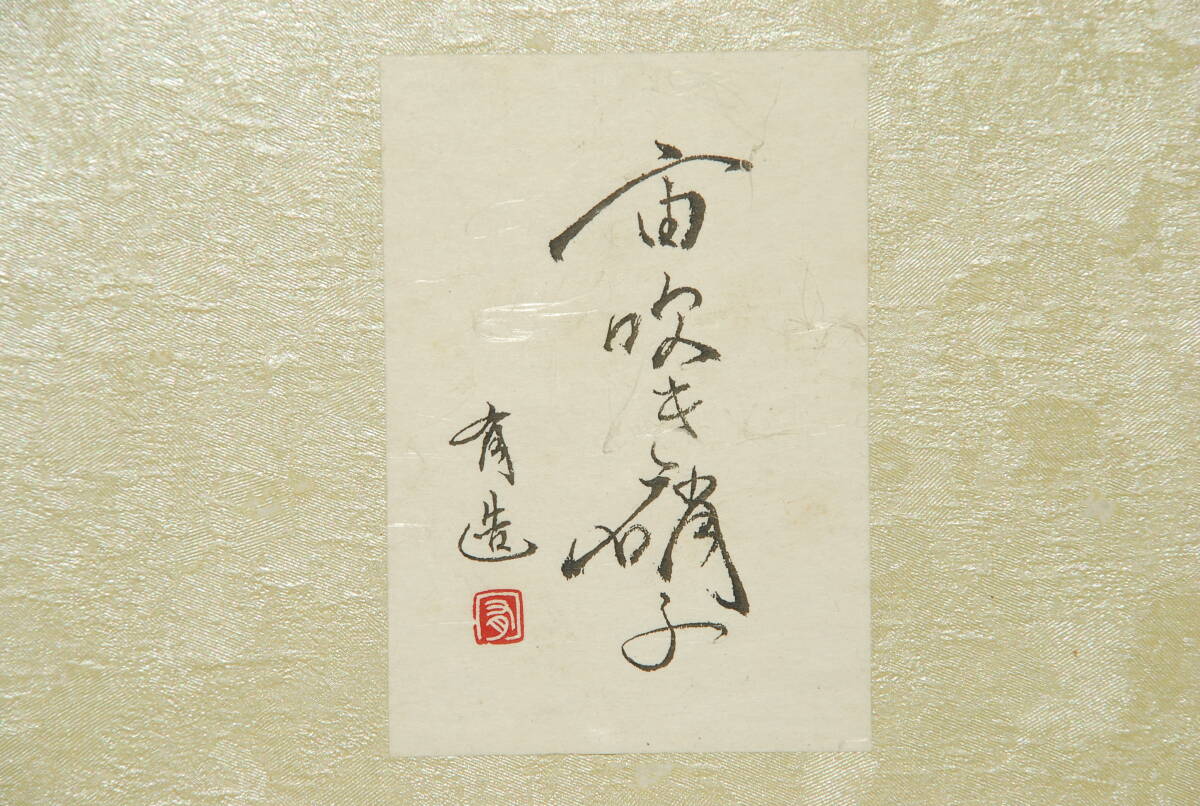 宙吹き硝子
有造
有